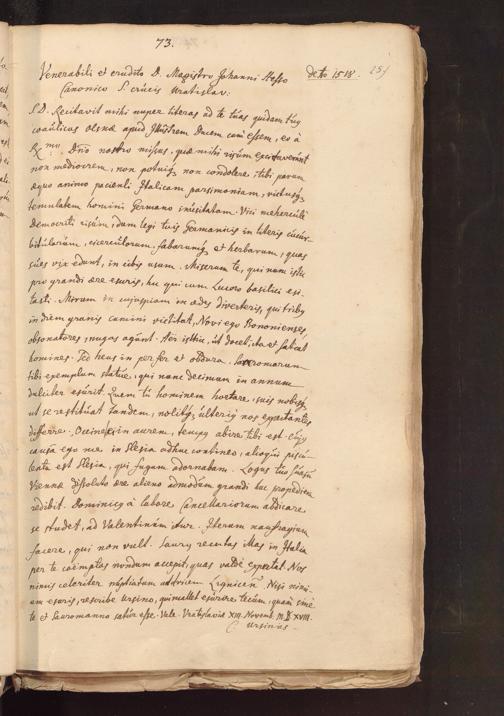 73.
Venerabili et erudito D. Magistro Johanni Hesso dº tº 1518. 251
Canonico S. crucis Wratislav:
S.D. Recitavit mihi nuper literas ad te tuas quidam
apud Illustrem Ducem cum essem, eo à
Rmo. Dño nostro missus, quae mihi risum excitaverunt
non mediocrem, non potuiq; non condolere tibi parum
aequo animo pacienti Italicam parsimoniam, victusq;
temulatem homini Germano inusitatam. Vici mehercule
Democriti risum, dum legi tuis Germanicis in literis cucur-
bitularum, cicerculorum, fabarumq; et herbarum, quas
sues vix edunt, in cibis usum. Miserum te, qui nam istic
pro grandi aere esuris, hic qui cum Lucoro basilici esi-
tasti. Mirum in cujuspiam in aedes diverteris, qui
in diem granis cumini victitat, Novi ego Bononienses,
obsonatores, nugas agunt. Aër istic, ut docti, ita et saturat
homines. Tu heus in perfer et obdura. Sauromanum
tibi exemplum statue, qui nunc decimum in annum
dulciter esurit. Quem tu hominem hortare, suis nobisq;
ut se restituat tandem, nolitq; ulterius nos expectantes
differre. in aurem, tempus abire tibi est.
causa ego me in Slesia adhuc contineo, alioqui
est Slesia, qui fugam adornabam. Logus tuo suasu
Viennae dissoluto aere alieno admodum grandi huc propediem
redibit. Dominicus à labore. Cancellariorum abdicare
se studet, ad Valentinum itur. Iterum naufragium
facere, qui non vult. Saurus recutus Mas in Italia
per te coëmptas nondum accepit, quas valde expectat. Nos
nimis celeriter nuptiatum Lignicen. Nisi nimi-
um esuris, rescribe Ursino, qui mallet esurire tecum, quam sine
te et Sauromanno satur esse. Vale. Vratislavia XIII. Novemb. M.D.XVIII.
C. Ursinus.